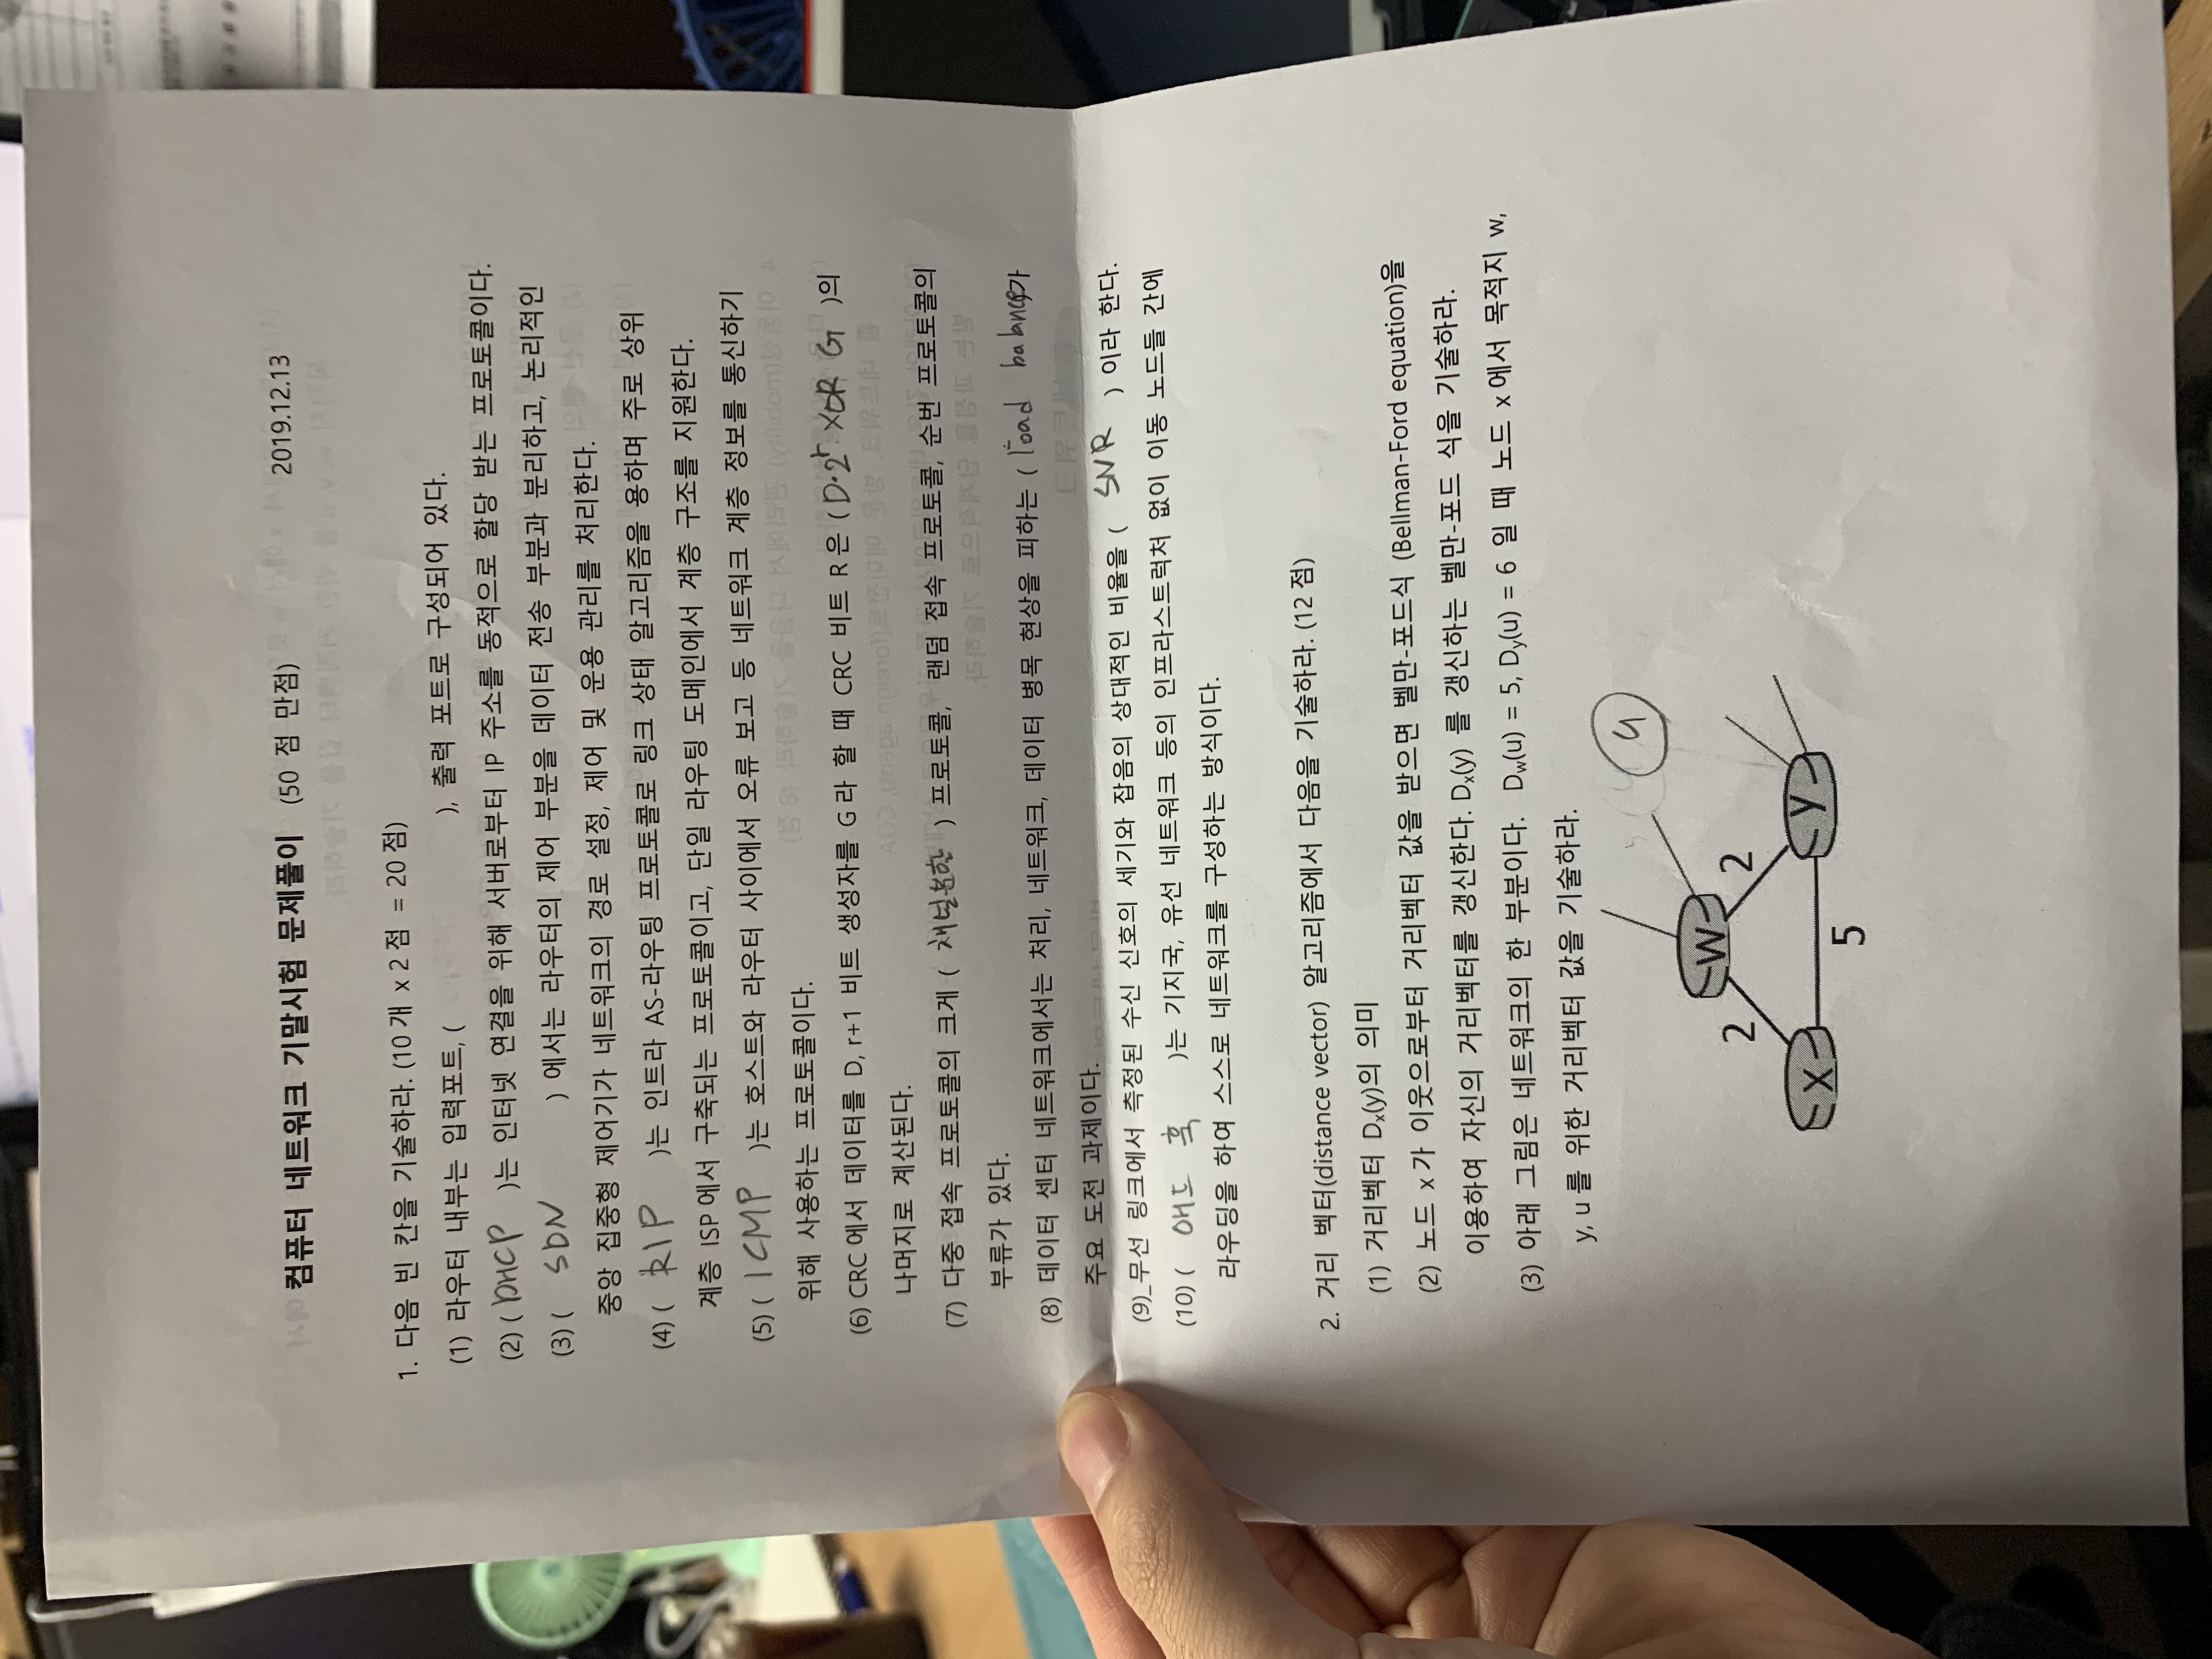 컴퓨터 네트워크 기말시험 문제풀이 (50 점 만점) 2019.12.13
1. 다음 빈 칸을 기술하라. (10 개 x 2 점 = 20 점)
(1) 라우터 내부는 입력포트, ( ), 출력 포트로 구성되어 있다.
(2) ( DHCP )는 인터넷 연결을 위해 서버로부터 IP 주소를 동적으로 할당 받는 프로토콜이다.
(3) ( SDN ) 에서는 라우터의 제어 부분을 데이터 전송 부분과 분리하고, 논리적인
중앙 집중형 제어기가 네트워크의 경로 설정, 제어 및 운용 관리를 처리한다.
(4) ( RIP )는 인트라 AS-라우팅 프로토콜로 링크 상태 알고리즘을 용하며 주로 상위
계층 ISP 에서 구축되는 프로토콜이고, 단일 라우팅 도메인에서 계층 구조를 지원한다.
(5) ( ICMP )는 호스트와 라우터 사이에서 오류 보고 등 네트워크 계층 정보를 통신하기
위해 사용하는 프로토콜이다.
(6) CRC 에서 데이터를 D, r+1 비트 생성자를 G 라 할 때 CRC 비트 R 은 ( D·2ʳ XOR G )의
나머지로 계산된다.
(7) 다중 접속 프로토콜의 크게 ( 채널분할 ) 프로토콜, 랜덤 접속 프로토콜, 순번 프로토콜의
부류가 있다.
(8) 데이터 센터 네트워크에서는 처리, 네트워크, 데이터 병목 현상을 피하는 ( load balance)가
주요 도전 과제이다.
(9)_무선 링크에서 측정된 수신 신호의 세기와 잡음의 상대적인 비율을 ( SNR ) 이라 한다.
(10) ( 애드 훅 )는 기지국, 유선 네트워크 등의 인프라스트럭처 없이 이동 노드들 간에
라우딩을 하여 스스로 네트워크를 구성하는 방식이다.
2. 거리 벡터(distance vector) 알고리즘에서 다음을 기술하라. (12 점)
(1) 거리벡터 Dₓ(y)의 의미
(2) 노드 x 가 이웃으로부터 거리벡터 값을 받으면 벨만-포드식 (Bellman-Ford equation)을
이용하여 자신의 거리벡터를 갱신한다. Dₓ(y) 를 갱신하는 벨만-포드 식을 기술하라.
(3) 아래 그림은 네트워크의 한 부분이다. Dw(u) = 5, Dy(u) = 6 일 때 노드 x 에서 목적지 w,
y, u 를 위한 거리벡터 값을 기술하라.
u
W
2 2
X y
5